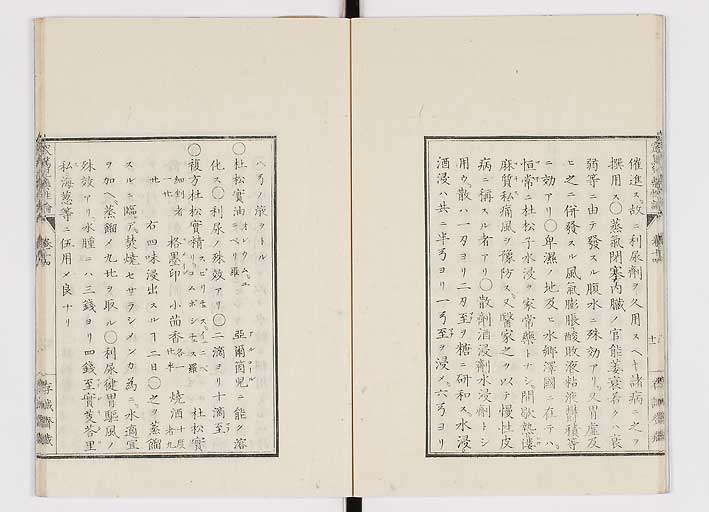 催進ス故ニ利尿劑ヲ久用スヘキ諸病ニ之ヲ
撰用ス〇蒸氣閉塞内臓ノ官能萎衰若クハ衰
弱等ニ由テ發スル腹水ニ殊効アリ又胃虚及
ヒ之ニ併發スル風氣膨脹酸敗液粘液欝積等
ニ効アリ〇卑濕ノ地及ヒ水郷澤國ニ在テハ
恒常ニ杜松子水浸ヲ家常藥トナシ間歇熱僂
麻質私痛風ヲ豫防ス又醫家之ヲ以テ慢性皮
病ニ稱スル者アリ〇散劑酒浸劑水浸劑トシ
用ウ散ハ一刃ヨリ二刃至ヲ糖ニ研和ス水浸
酒浸ハ共ニ半弓ヨリ一弓至ヲ浸ノ六弓ヨリ
八弓ノ液ヲトル
〇杜松實油 亞爾箇兒ニ能ク溶
化ス〇利尿ノ殊效アリ〇二滴ヨリ十滴至
〇複方杜松實精 杜松實
細剉者 格墨印 小茴香 燒酒
右四味浸出スルコ二日〇之ヲ蒸餾
スルニ臨テ焚焼セサラシメンカ為ニ水適宜
ヲ加ヘ蒸餾メ九比ヲ取ル〇利尿健胃驅風ノ
殊效アリ水腫ニハ三錢ヨリ四錢至實芰荅里
私海葱等ニ伍用メ良ナリ